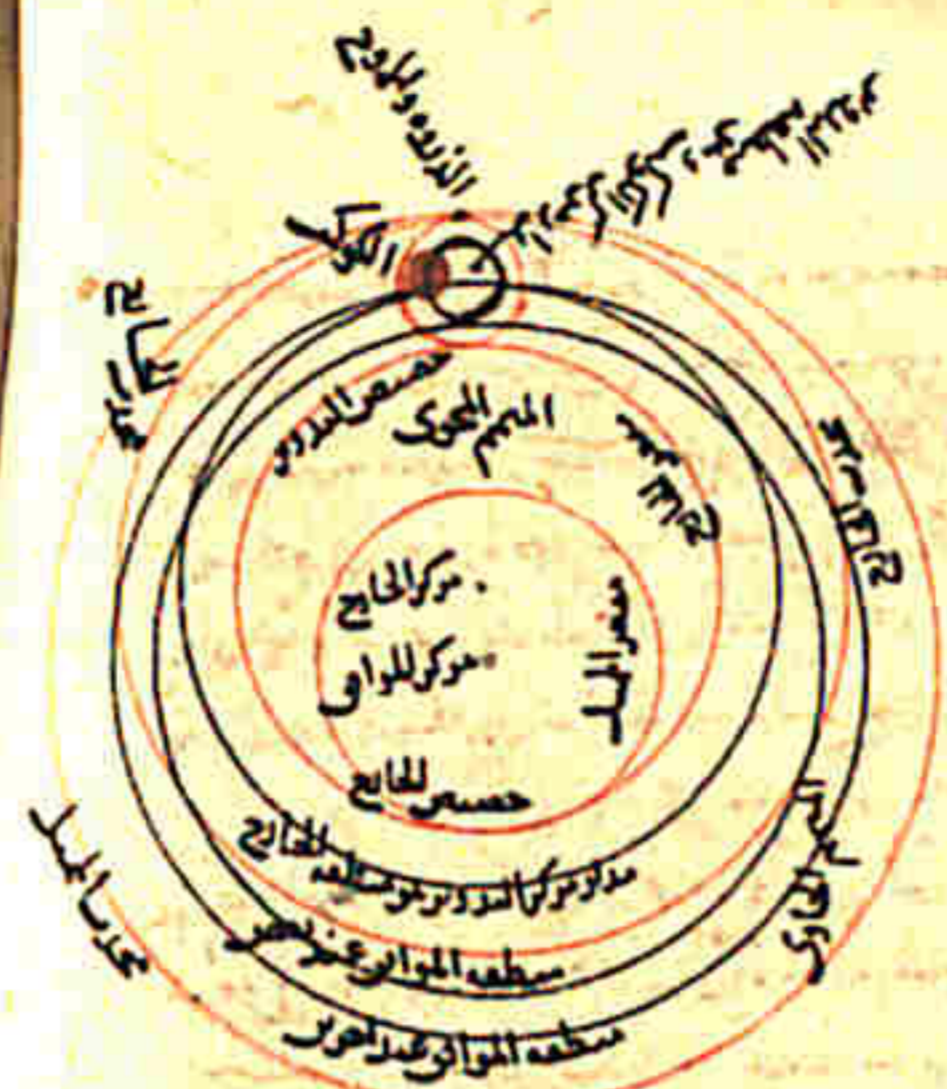 الذروه والاوج
الكوكب
محدب الخارج
حضيض التدوير
المتمم المحوى
مقعر الخارج
محدب الخارج
مركز الخارج
مركز الموافق
مقعر الممثل
حضيض الخارج
مدار مركز التدوير وهو منطقه الخارج
منطقه الموافق عند بعض
منطقه الموافق عند اخرين
المتمم الحاوى
محدب الممثل